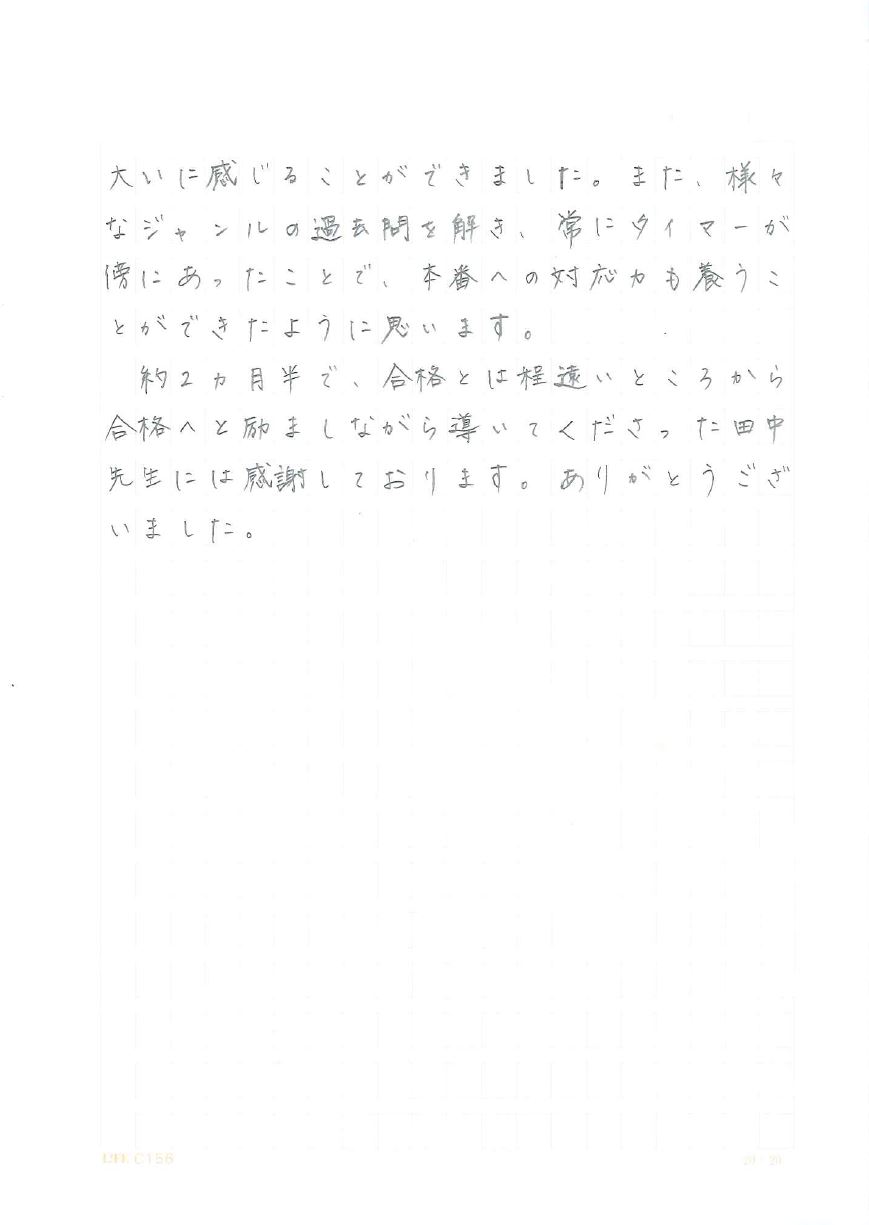 大いに感じることができました。また、様々
なジャンルの過去問を解き、常にタイマーが
傍にあったことで、本番への対応力も養うこ
とができたように思います。
約2カ月半で、合格とは程遠いところから
合格へと励ましながら導いてくださった田中
先生には感謝しております。ありがとうござ
いました。
LIFE C156
20 20